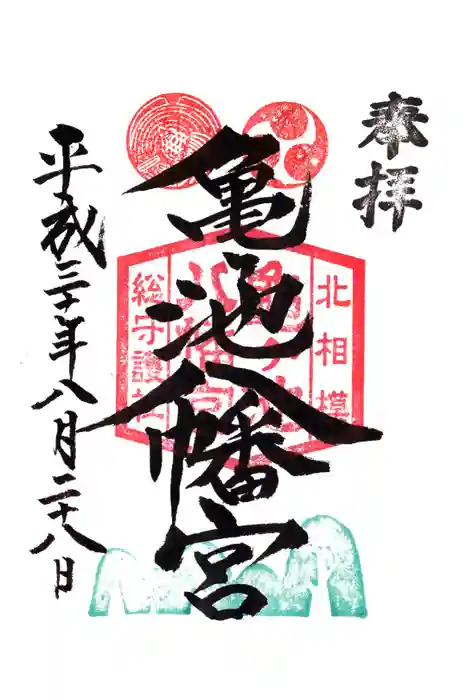 奉拝
北相模
亀池八幡宮
総守護社
平成三十年八月二十八日